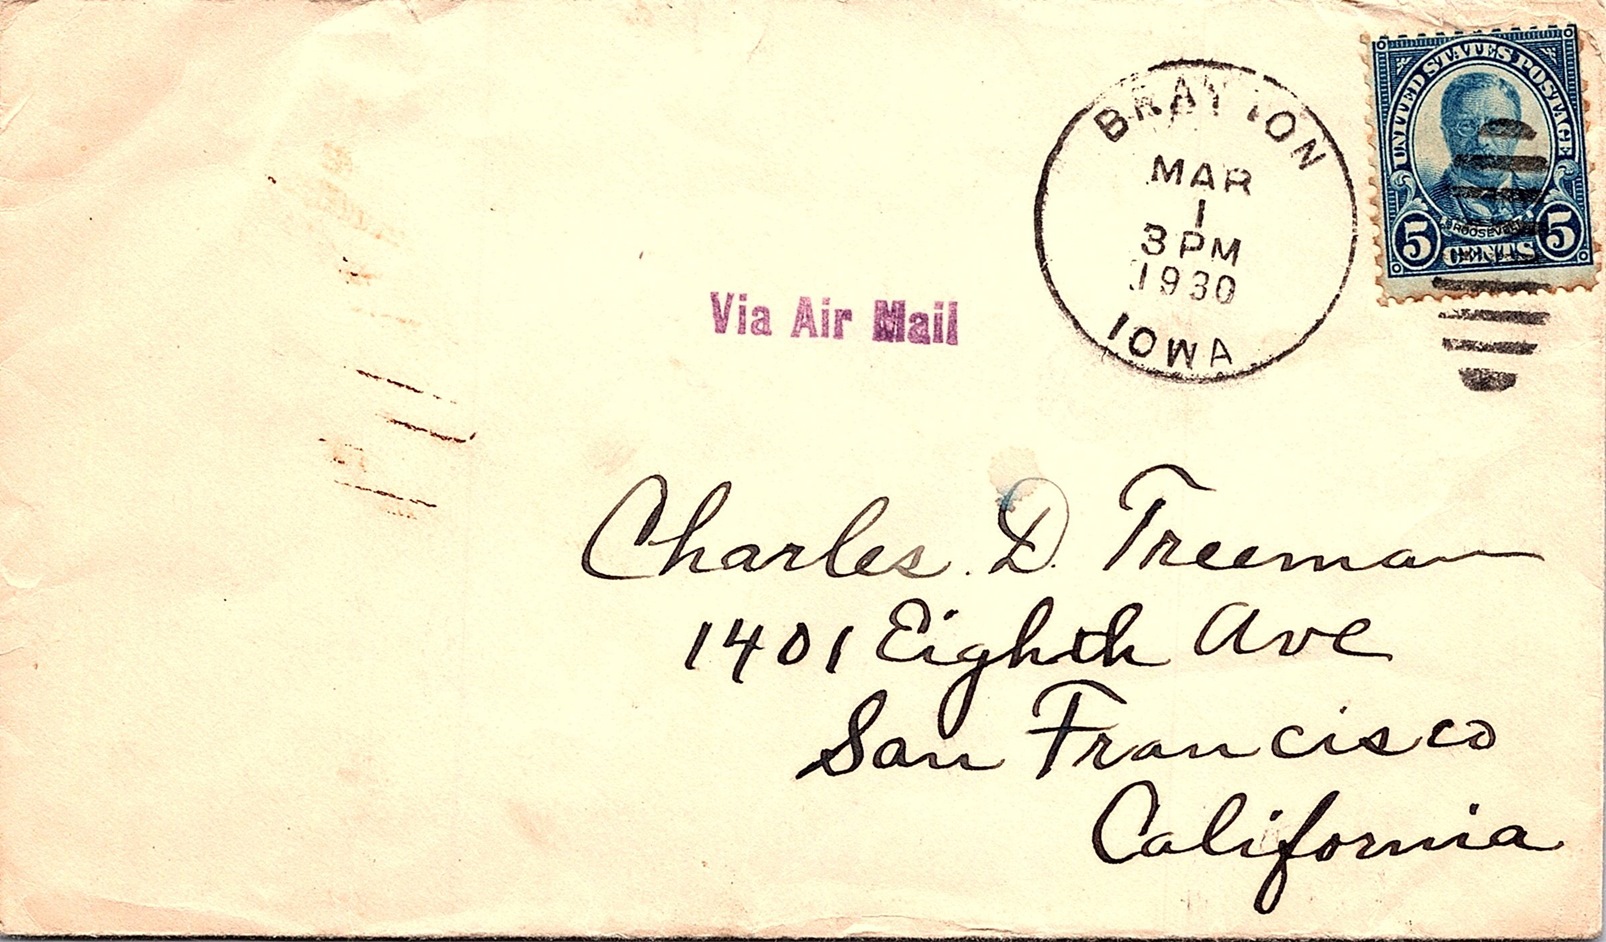 BRAYTON
MAR
1
3 PM
1930
IOWA
UNITED STATES POSTAGE
ROOSEVELT
5 CENTS 5
Via Air Mail
Charles D. Treeman
1401 Eighth Ave
San Francisco
California